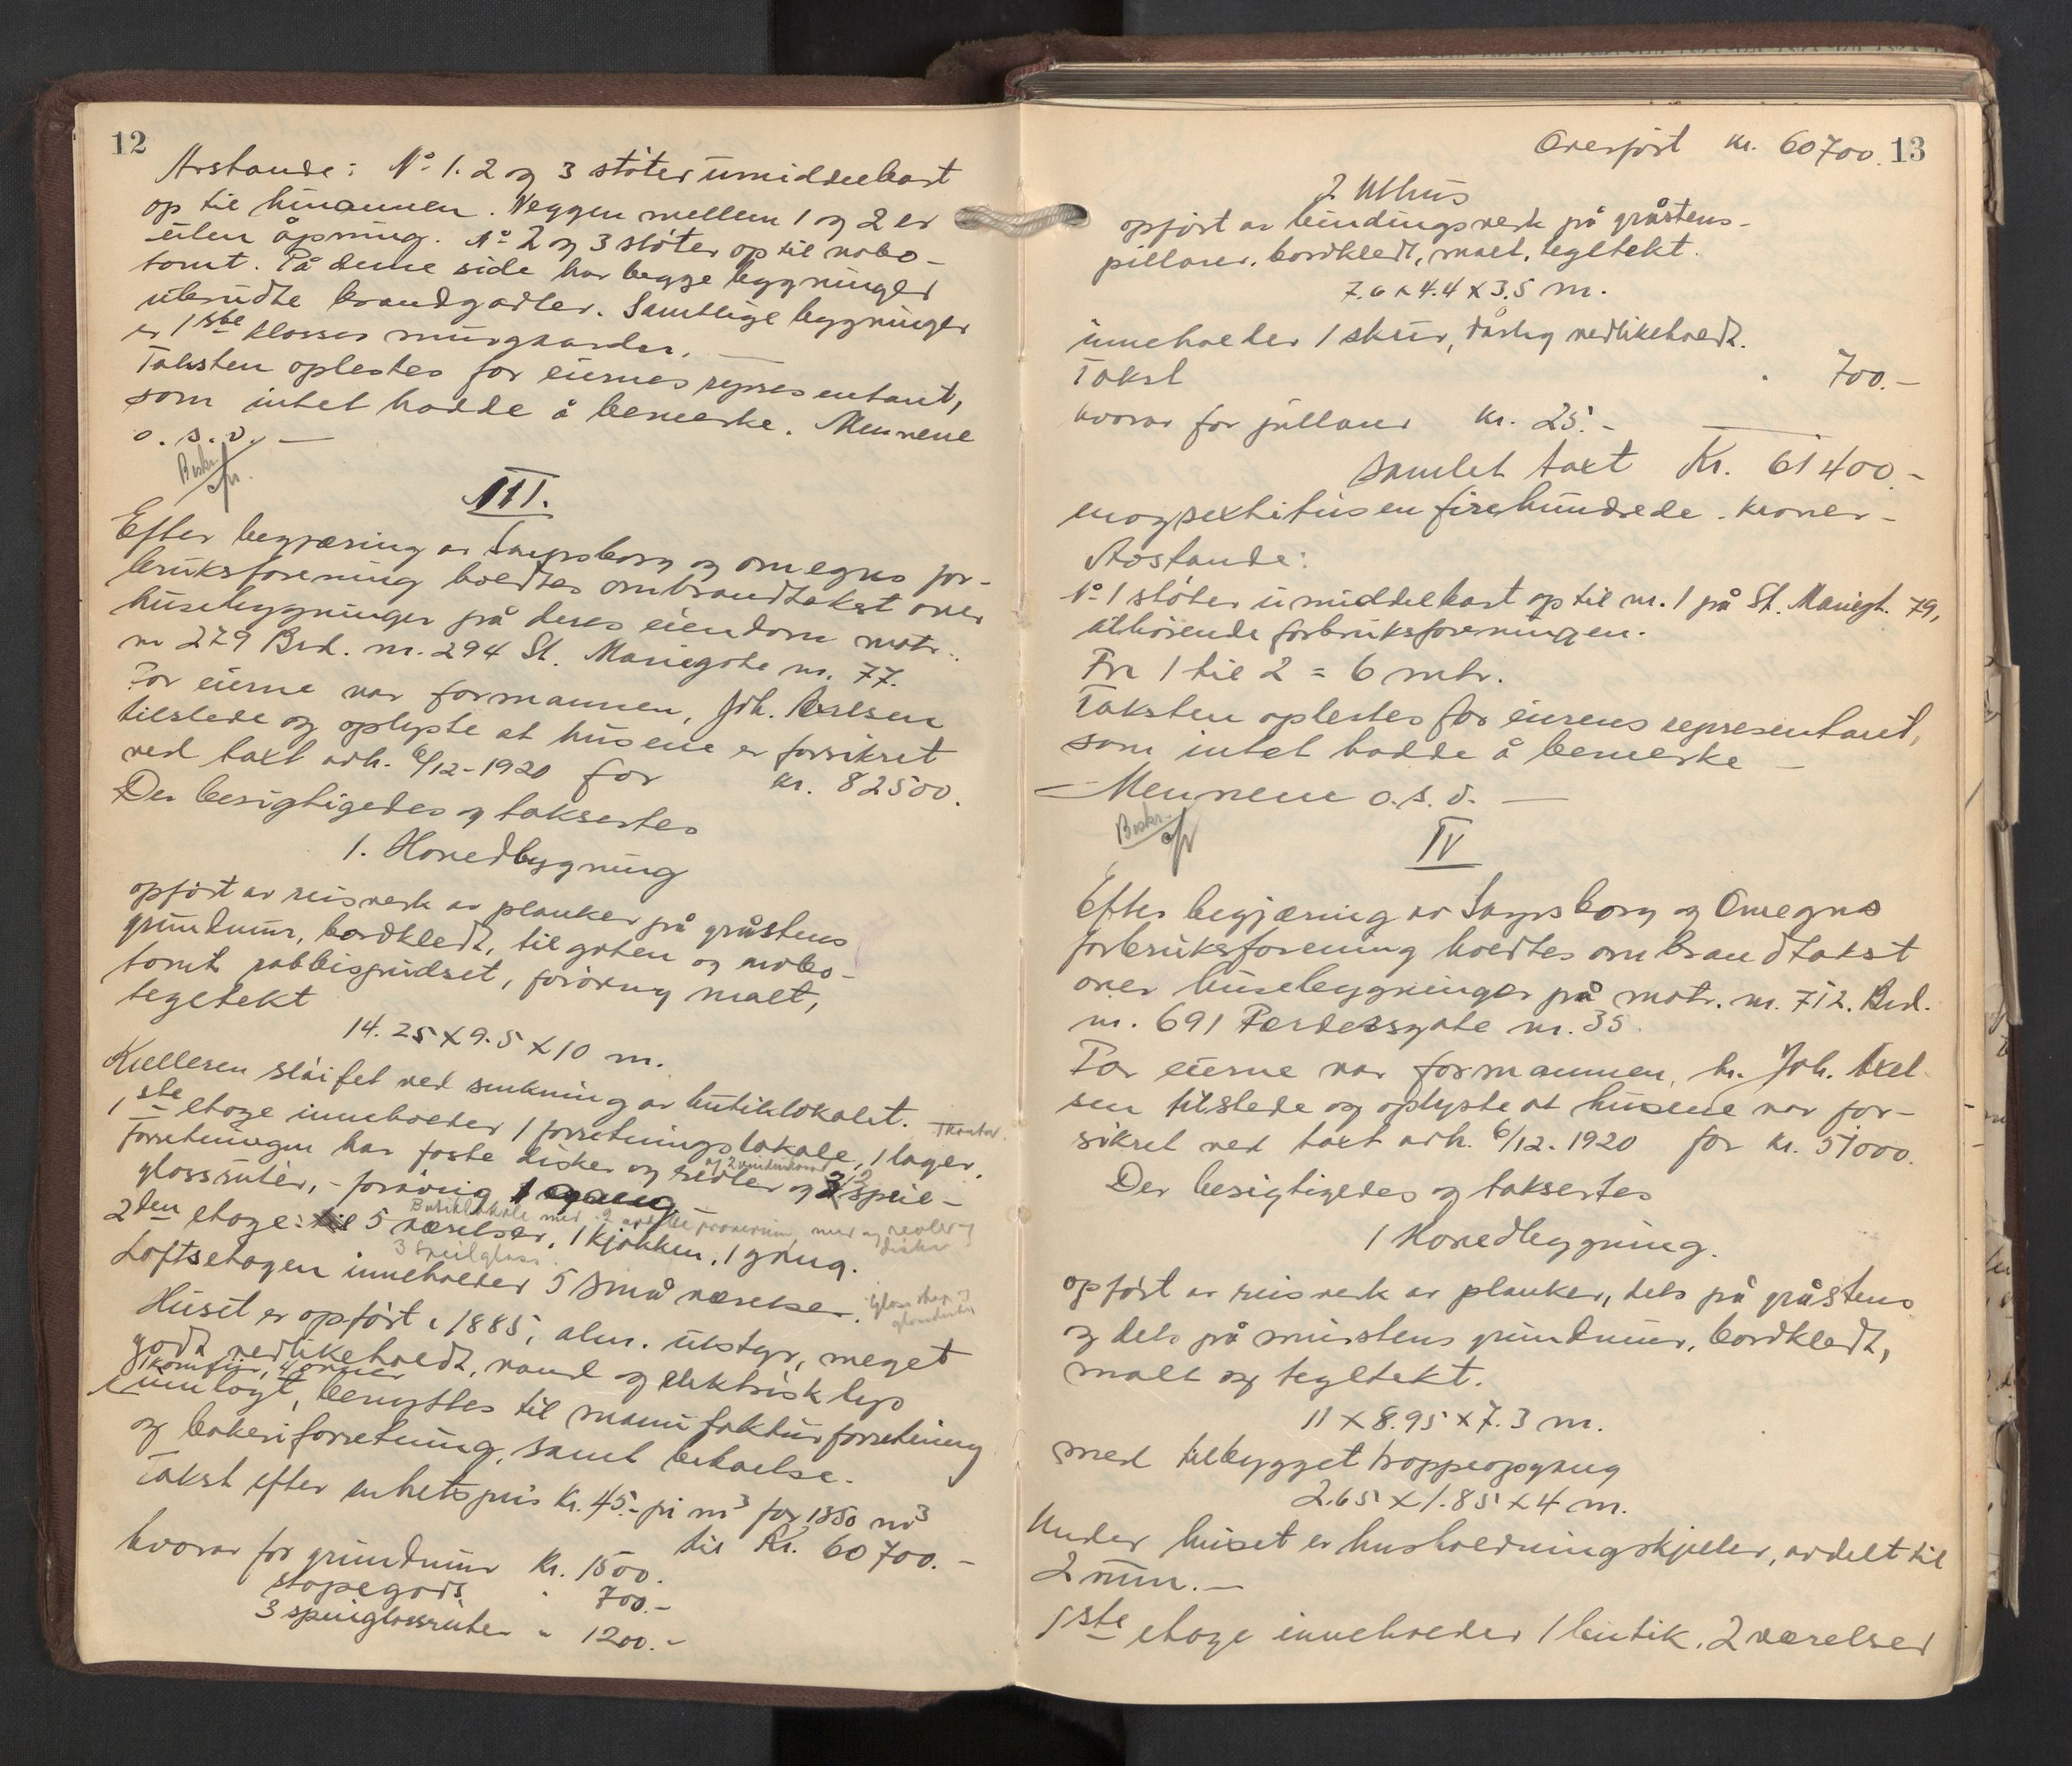 12
Avstande: No 1. 2 og 3 støter umiddelbart
op til hinannen. Veggen mellem 1 og 2 er
uten åpning. No 2 og 3 støter op til nabo-
tomt. På denne side har begge bygninger
ubrudte brandgavler. Samtlige bygninger
er 1ste klasses murgaarder. —
Taksten oplestes for eiernes representant,
som intet hadde å bemerke. Mennene
o. s. v. —
Beskr.
III.
Efter begjæring av Sarpsborg og omegns for-
bruksforening holdtes ombrandtakst over
husebygninger på deres eiendom matr.
nr 279 Brd. nr. 294 St. Mariegate nr. 77.
For eierne var formannen, Joh. Axelsen
tilstede og oplyste at husene er forsikret
ved takt avh. 6/12-1920 for kr. 82500.
Der besigtigedes og taksertes
1. Hovedbygning
opført av reisverk av planker på gråstens
grundmur, bordkledt, til gaten og nabo-
tomt rabbitspudset, forøvrig malt,
tegltekt
14.25 X 9.5 X 10 m.
Kjelleren sløifet ved senkning av butiklokalet.
1ste etage inneholder 1 forretningslokale, 1 lager, 1 kontor.
forretningen har faste disker og reoler og speil-
glassruter, - forøvrig 1 gang
Butiklokale med 2
2den etage: til 5 værelser, 1 kjøkken, 1 gang.
3 Speilglass.
Loftsetagen inneholder 5 små værelser.
Huset er opført i 1885, alm. utstyr, meget
godt vedlikeholdt, vand og elektrisk lys
1 komfur, 4 ovner
innlagt, benyttes til manufakturforretning
og bakeriforretning, samt beboelse.
Takst efter enhetspris kr. 45.- pr m3 for 1350 m3
til Kr. 60700.-
hvorav for grundmur Kr. 1500.
støpegods " 700.-
3 speilglassruter " 1200.-
13
Overført kr. 60700.
2 Uthus
opført av bindingsverk på gråstens-
pillarer, bordkledt, malt, tegltekt.
7.6 X 4.4 X 3.5 m.
inneholder 1 skur, dårlig vedlikeholdt.
Takst " 700.-
hvorav for pillarer kr. 25.-
Samlet taxt Kr. 61400.-
enogsextitusen firehundrede. kroner-
Avstande:
No 1 støter umiddelbart op til nr. 1 på St. Mariegt. 79,
tilhørende forbruksforeningen.
Fra 1 til 2 = 6 mtr.
Taksten oplestes for eierens representant,
som intet hadde å bemerke —
— Mennene o. s. v. —
Beskr.
IV
Efter begjæring av Sarpsborg og Omegns
forbruksforening holdtes ombrandtakst
over husebygninger på matr. nr. 712. Brd.
nr. 691 Pedersgate nr. 35.
For eierne var formannen, hr. Joh. Axel-
sen tilstede og oplyste at husene var for-
sikret ved taxt avh. 6/12. 1920 for kr. 51000.
Der besigtigedes og taksertes
1 Hovedbygning.
opført av reisverk av planker, dels på gråstens
og dels på murstens grundmur, bordkledt,
malt og tegltekt.
11 X 8.95 X 7.3 m.
med tilbygget trappeopgang
2.65 X 1.85 X 4 m.
Under huset er husholdningskjeller, avdelt til
2 rum. —
1ste etage inneholder 1 butik, 2 værelser